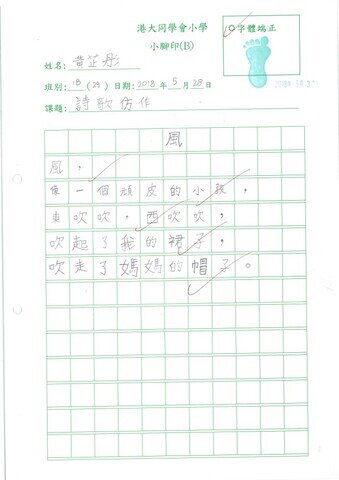 港大同學會小學
小腳印(B)
字體端正
姓名：黃芷彤
班別：1B (29) 日期：2018 年 5 月 28 日
課題：詩歌仿作
風
風，
像一個頑皮的小孩，
東吹吹，西吹吹，
吹起了我的裙子，
吹走了媽媽的帽子。